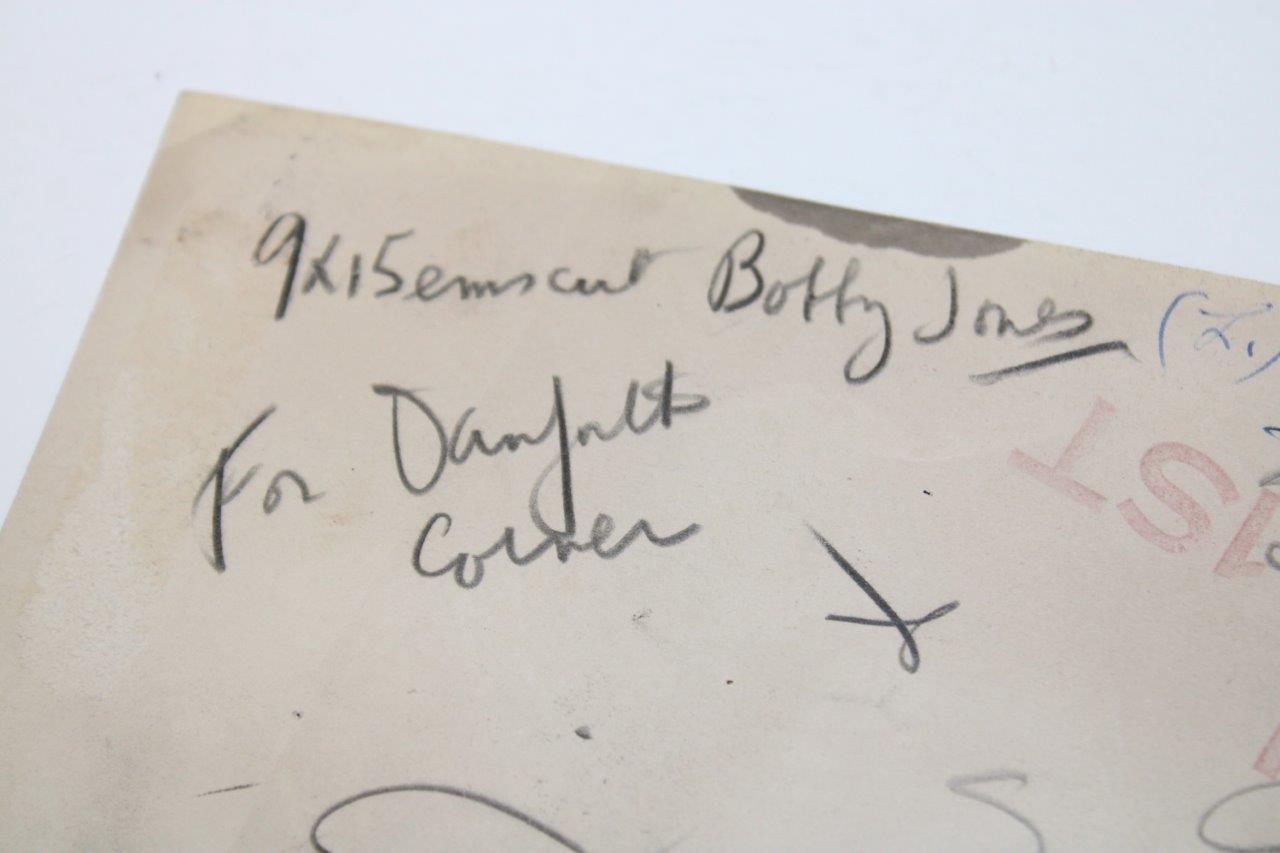 9x15 ems cut Bobby Jones (L.)
For Danforth
Corner
1ST